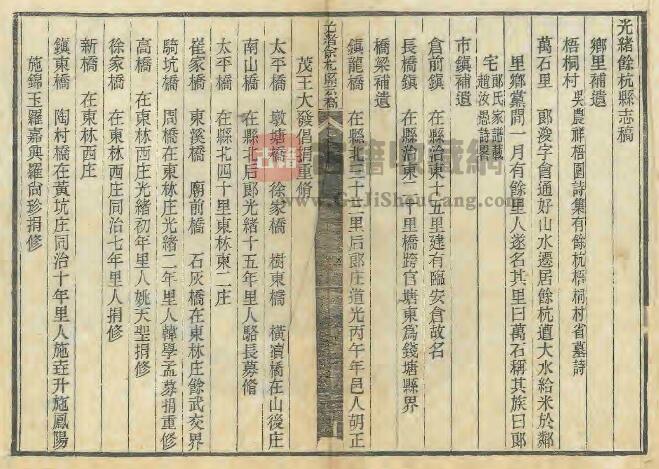 光緒餘杭縣志稿
鄉里補遺
梧桐村 吳農祥梧園詩集有餘杭梧桐村省墓詩
萬石里 郎浚字會通好山水遷居餘杭道大水給米於鄰
里鄉黨間一月有餘里人遂名其里曰萬石稱其族曰郎
宅 郎氏家譜載趙汝愚詩畧
市鎮補遺
倉前鎮 在縣治東十五里建有臨安倉故名
長橋鎮 在縣治東二十里橋跨官塘東為錢塘縣界
橋梁補遺
鎮龍橋 在縣北三十五里后郎庄道光丙午年邑人胡正
光緒餘杭縣志稿
茂王大發倡捐重修
太平橋 墩塘橋 徐家橋 樹東橋 橫濆橋在山後庄
南山橋 在縣北后郎光緒十五年里人駱長募脩
太平橋 在縣北四十里東林東二庄
崔家橋 東溪橋 廟前橋 石灰橋在東林庄餘武交界
騎坑橋 周橋在東林庄光緒二年里人韓學孟募捐重修
高橋 在東林西庄光緒初年里人姚天聖捐修
徐家橋 在東林西庄同治七年里人捐修
新橋 在東林西庄
鎮東橋 陶村橋在黃坑庄同治十年里人施壵升施鳳陽
施錦玉羅嘉興羅尚珍捐修
古籍 古籍收藏網
www.GuJiShouCang.com